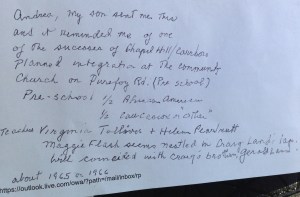 Andrea, my son sent me this
and it reminded me of one
of the successes of Chapel Hill/Carrboro
Planned integration at the Community
Church on Purefoy Rd. (Pre school)
Pre-school 1/2 African American
1/2 caucasian "other"
Teachers Virginia Tolliver & Helen
Maggie Flash seems nestled on Craig Land's lap.
Well connected with Craig's brother Gerald
about 1965 or 1966
https://outlook.live.com/owa/?path=/mail/inbox/rp